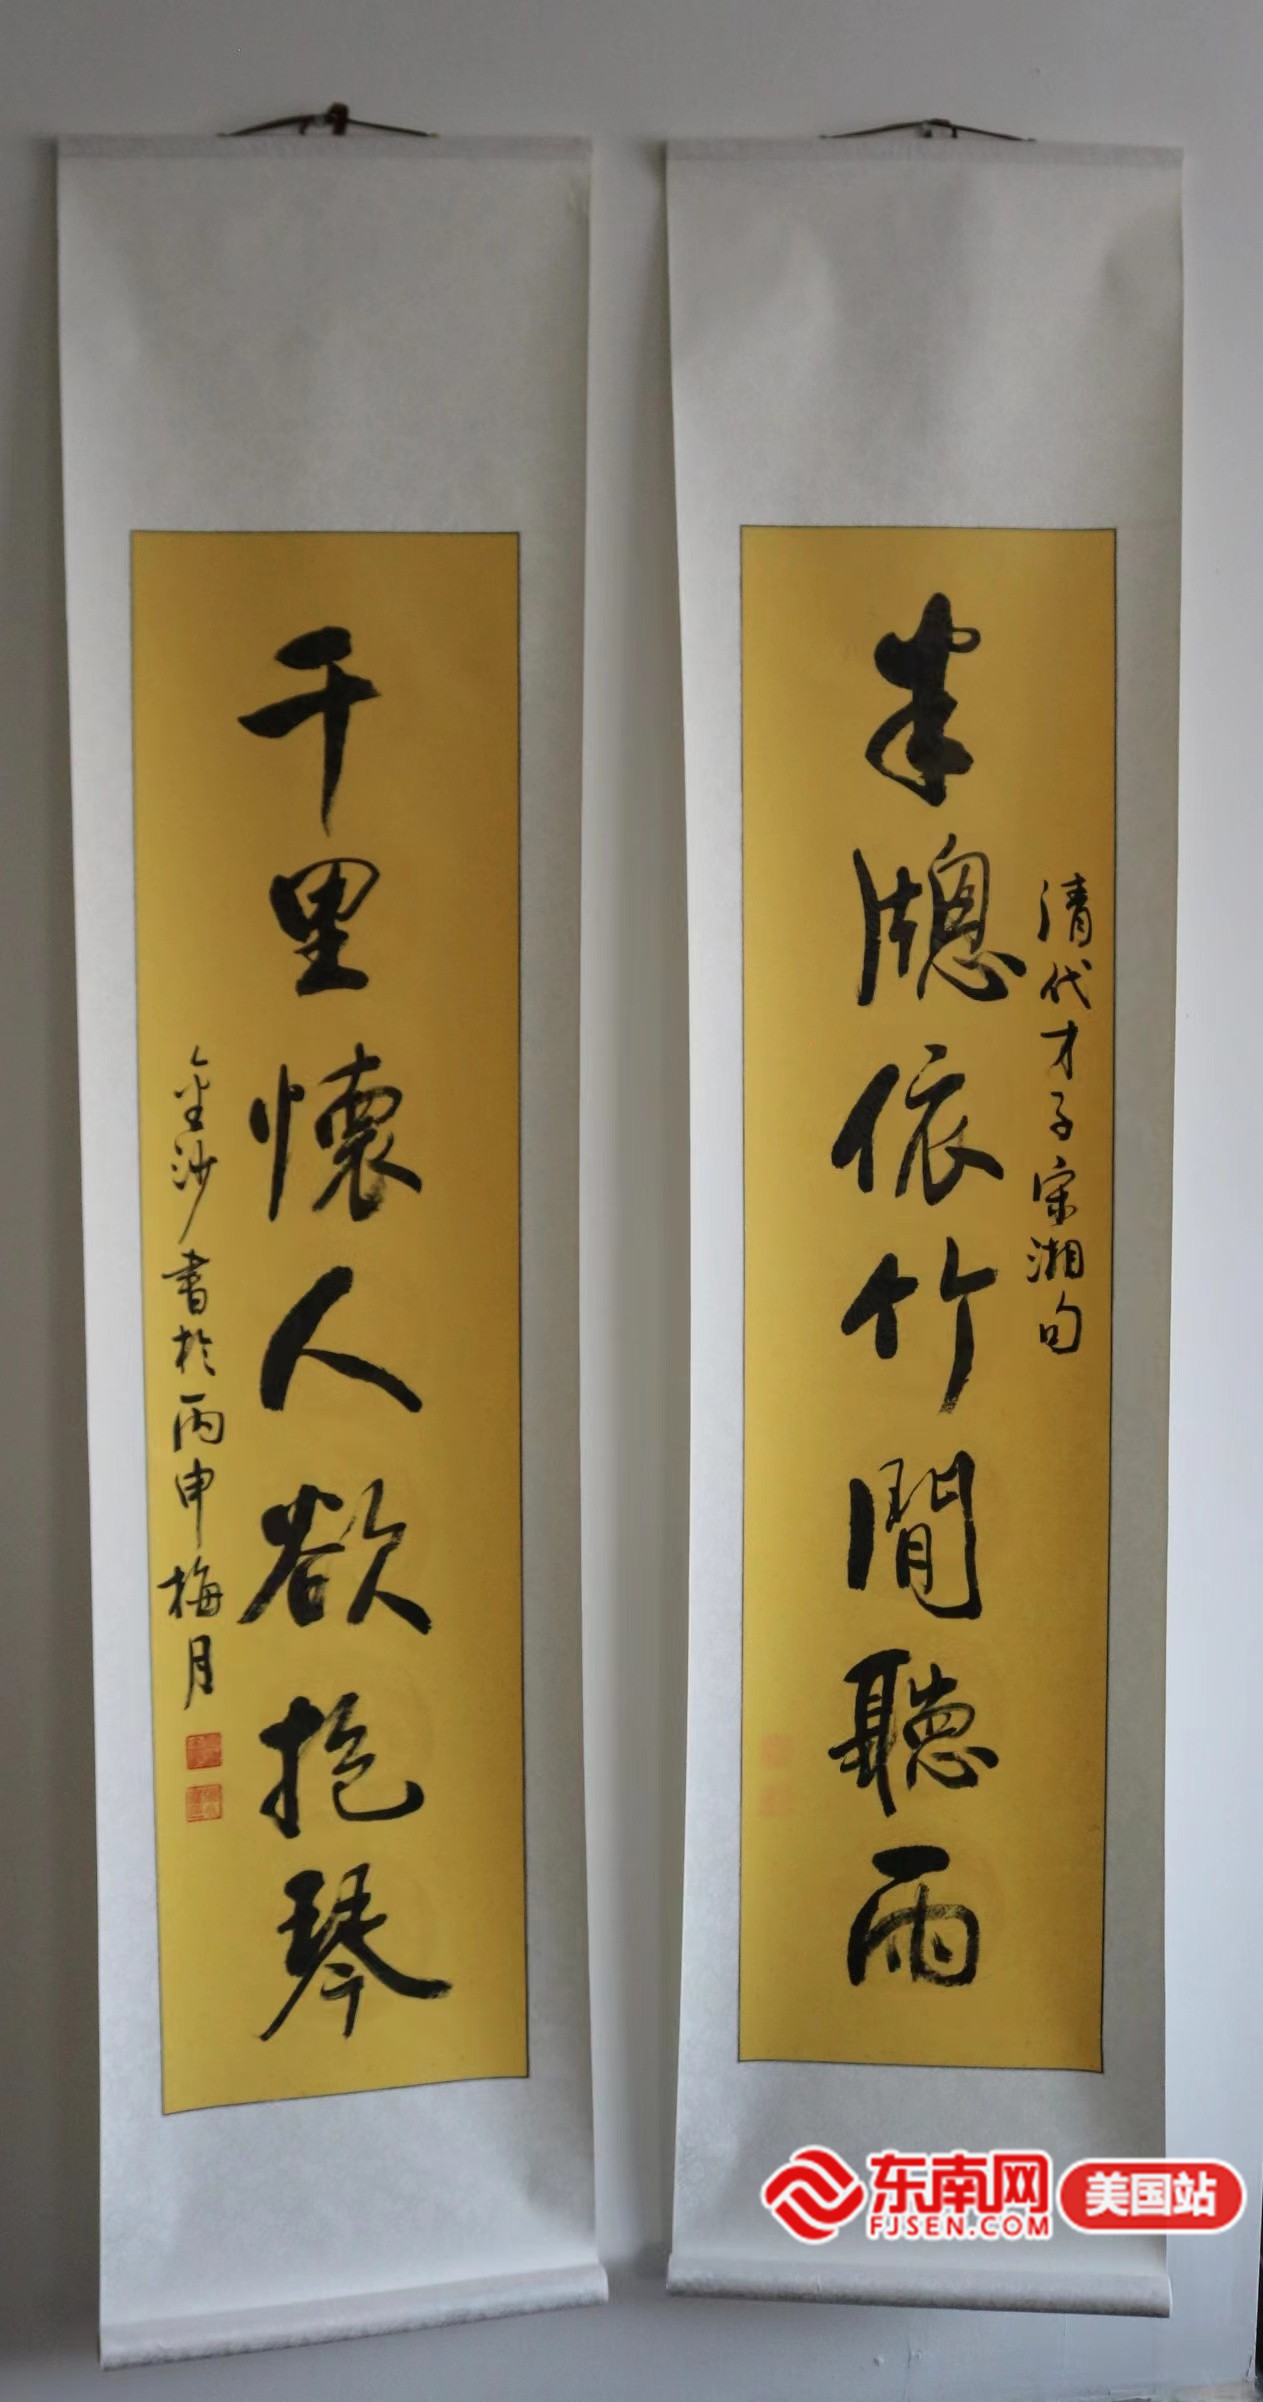 半牕依竹閒聽雨
清代才子宋湘句
千里懷人欲抱琴
金沙書於丙申梅月
东南网
FJSEN.COM
美国站